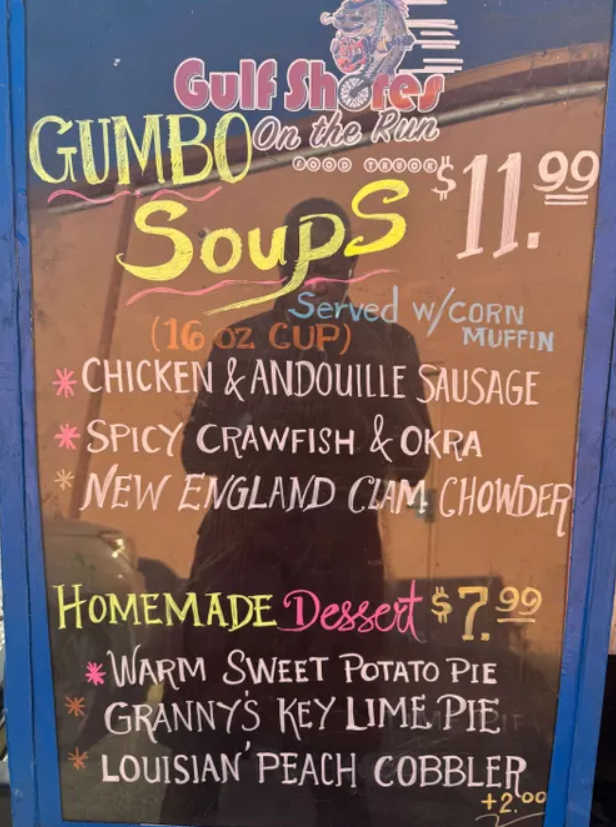 Gulf Shores
On the Run
FOOD TRUCK
GUMBO
Soups $11.99
Served w/CORN MUFFIN
(16 oz CUP)
* CHICKEN & ANDOUILLE SAUSAGE
* SPICY CRAWFISH & OKRA
* NEW ENGLAND CLAM CHOWDER
HOMEMADE Dessert $7.99
* WARM SWEET POTATO PIE
* GRANNY'S KEY LIME PIE
* LOUISIAN' PEACH COBBLER
+2.00